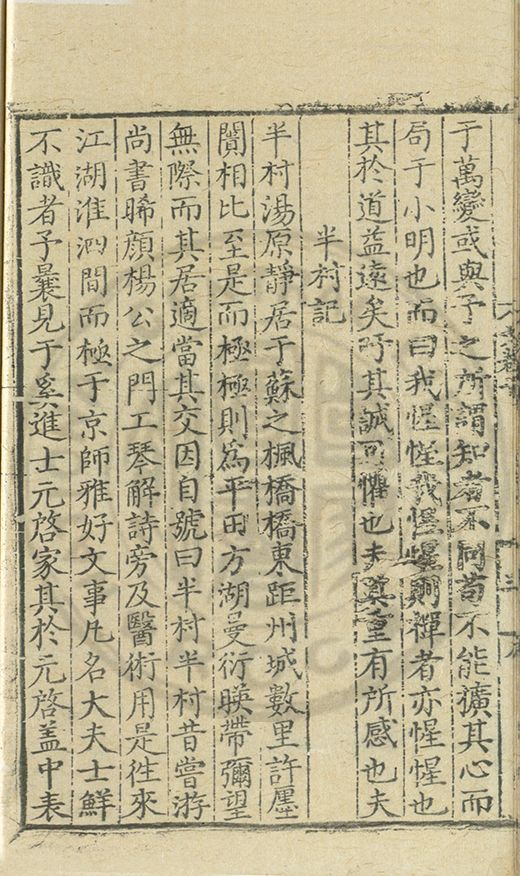 于萬變或與予之所謂知者不同苟不能擴其心而
局于小明也而曰我惺惺我惺惺則禪者亦惺惺也
其於道益遠矣吁其誠可懼也夫真重有所感也夫
半村記
半村湯原靜居于蘇之楓橋橋東距州城數里許廛
閈相比至是而極極則為平田方湖曼衍暎帶彌望
無際而其居適當其交因自號曰半村半村昔嘗游
尚書晞顏楊公之門工琴解詩旁及醫術用是徃來
江湖淮泗間而極于京師雅好文事凡名大夫士鮮
不識者予曩見于奚進士元啓家其於元啓盖中表